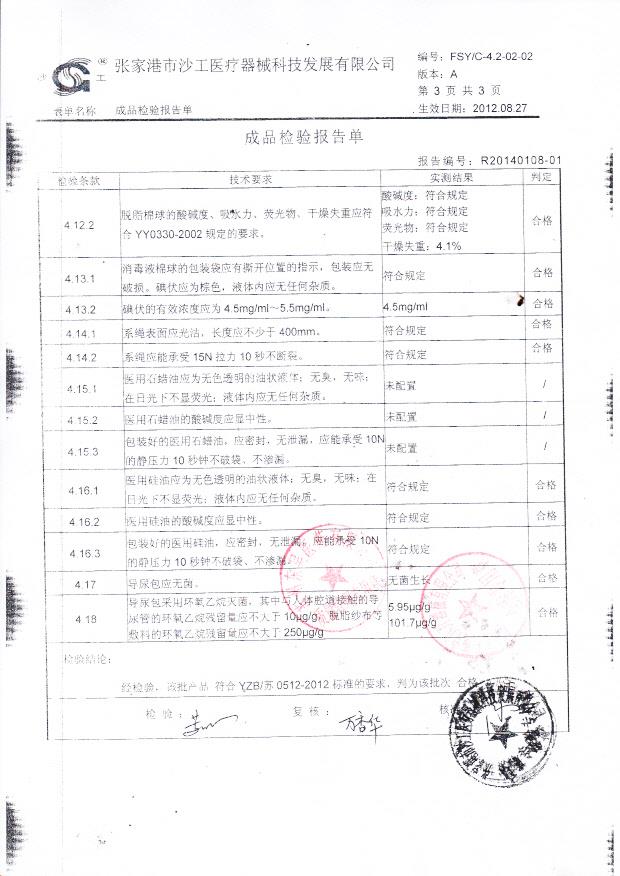 张家港市沙工医疗器械科技发展有限公司
编号：FSY/C-4.2-02-02
版本：A
第 3 页 共 3 页
表单名称 成品检验报告单
生效日期：2012.08.27
成品检验报告单
报告编号：R20140108-01
检验条款 技术要求 实测结果 判定
4.12.2 脱脂棉球的酸碱度、吸水力、荧光物、干燥失重应符
合 YY0330-2002 规定的要求。
酸碱度：符合规定
吸水力：符合规定
荧光物：符合规定
干燥失重：4.1%
合格
4.13.1 消毒液棉球的包装袋应有撕开位置的指示，包装应无
破损。碘伏应为棕色，液体内应无任何杂质。
符合规定 合格
4.13.2 碘伏的有效浓度应为 4.5mg/ml～5.5mg/ml。 4.5mg/ml 合格
4.14.1 系绳表面应光洁，长度应不少于 400mm。 符合规定 合格
4.14.2 系绳应能承受 15N 拉力 10 秒不断裂。 符合规定 合格
4.15.1 医用石蜡油应为无色透明的油状液体；无臭，无味；
在日光下不显荧光；液体内应无任何杂质。
未配置 /
4.15.2 医用石蜡油的酸碱度应显中性。 未配置 /
4.15.3 包装好的医用石蜡油，应密封，无泄漏，应能承受 10N
的静压力 10 秒钟不破袋、不渗漏。
未配置 /
4.16.1 医用硅油应为无色透明的油状液体；无臭，无味；在
日光下不显荧光；液体内应无任何杂质。
符合规定 合格
4.16.2 医用硅油的酸碱度应显中性。 符合规定 合格
4.16.3 包装好的医用硅油，应密封，无泄漏，应能承受 10N
的静压力 10 秒钟不破袋、不渗漏。
符合规定 合格
4.17 导尿包应无菌。 无菌生长 合格
4.18 导尿包采用环氧乙烷灭菌，其中与人体腔道接触的导
尿管的环氧乙烷残留量应不大于 10μg/g，脱脂纱布等
敷料的环氧乙烷残留量应不大于 250μg/g
5.95μg/g
101.7μg/g
合格
检验结论：
经检验，该批产品 符合 YZB/苏 0512-2012 标准的要求，判为该批次 合格
检 验： 复 核：